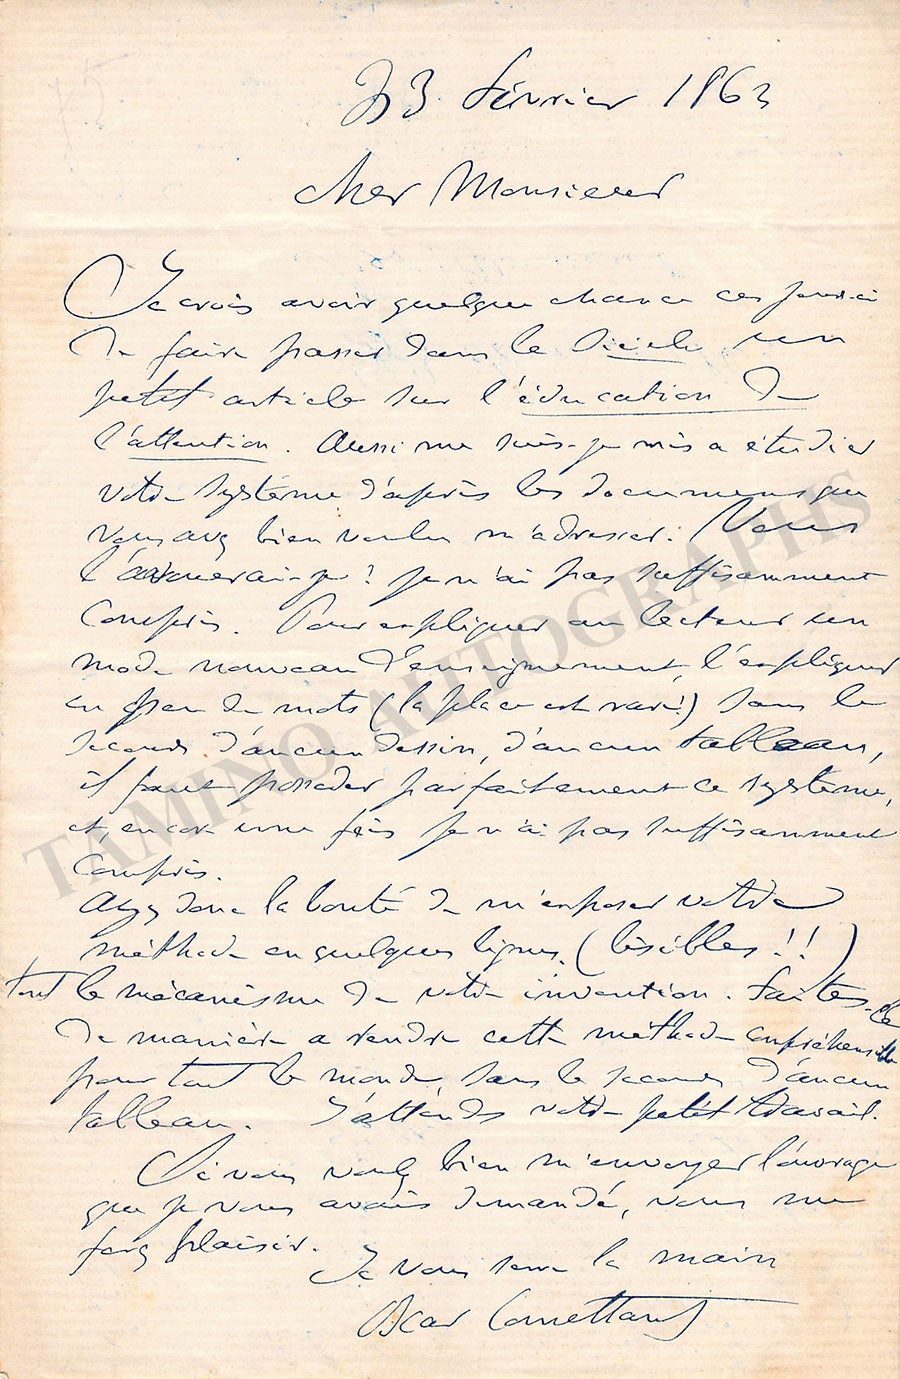 23 février 1863
Cher Monsieur
Je crois avoir quelque chance ces jours-ci
de faire passer dans le Siècle un
petit article sur l'éducation de
l'attention. Aussi me suis-je mis a étudier
votre système d'après les documens que
vous avez bien voulu m'adresser. Vous
l'avouerai-je? je n'ai pas suffisamment
compris. Pour expliquer au lecteur un
mode nouveau d'enseignement, l'expliquer
en peu de mots (la place est rare!) sans le
secours d'aucun dessin, d'aucun tableau,
il faut posséder parfaitement ce système,
et encore une fois je n'ai pas suffisamment
compris.
Ayez donc la bonté de m'exposer votre
méthode en quelques lignes (lisibles!!)
tout le mécanisme de votre invention. Faites-le
de manière a rendre cette méthode compréhensible
pour tout le monde, sans le secours d'aucun
tableau. J'attends votre petit travail.
Si vous voulez bien m'envoyer l'ouvrage
que je vous avais demandé, vous me
ferez plaisir.
Je vous serre la main
Oscar Comettant
TAMINO AUTOGRAPHS